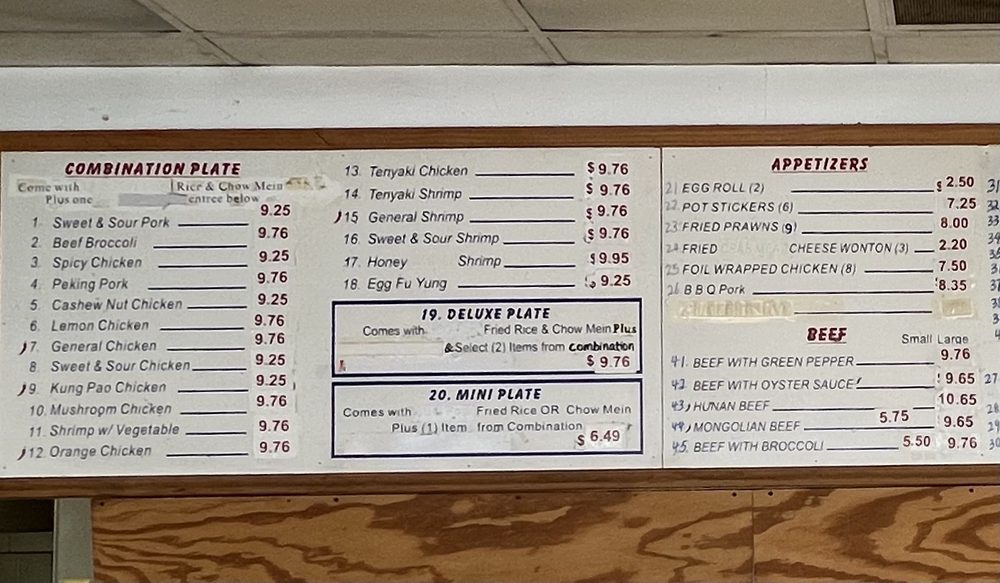 COMBINATION PLATE
Come with Rice & Chow Mein
Plus one entree below
1. Sweet & Sour Pork 9.25
2. Beef Broccoli 9.76
3. Spicy Chicken 9.25
4. Peking Pork 9.76
5. Cashew Nut Chicken 9.25
6. Lemon Chicken 9.76
7. General Chicken 9.76
8. Sweet & Sour Chicken 9.25
9. Kung Pao Chicken 9.25
10. Mushroom Chicken 9.76
11. Shrimp w/ Vegetable 9.76
12. Orange Chicken 9.76
13. Teriyaki Chicken $ 9.76
14. Teriyaki Shrimp $ 9.76
15 General Shrimp $ 9.76
16. Sweet & Sour Shrimp $ 9.76
17. Honey Shrimp $9.95
18. Egg Fu Yung 9.25
19. DELUXE PLATE
Comes with Fried Rice & Chow Mein Plus
& Select (2) Items from combination
$ 9.76
20. MINI PLATE
Comes with Fried Rice OR Chow Mein
Plus (1) Item from Combination
$ 6.49
APPETIZERS
21 EGG ROLL (2) $ 2.50
22 POT STICKERS (6) 7.25
23 FRIED PRAWNS (9) 8.00
24 FRIED CHEESE WONTON (3) 2.20
25 FOIL WRAPPED CHICKEN (8) 7.50
26 B B Q Pork $8.35
BEEF
Small Large
41. BEEF WITH GREEN PEPPER 9.76
42. BEEF WITH OYSTER SAUCE 9.65
43. HUNAN BEEF 10.65
44. MONGOLIAN BEEF 5.75 9.65
45. BEEF WITH BROCCOLI 5.50 9.76
31
32
33
34
27
28
29
30